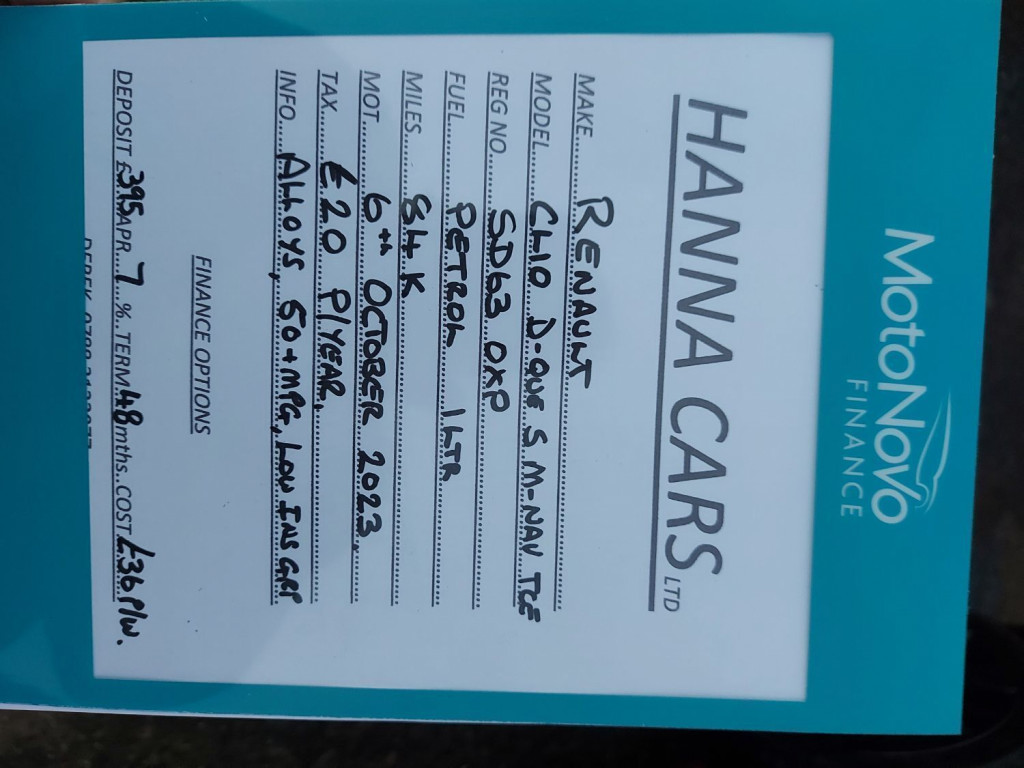 MotoNovo
FINANCE
HANNA CARS LTD
MAKE......RENAULT
MODEL....CLIO D-QUE S M-NAV TCE
REG NO....SD63 OXP
FUEL....PETROL 1 LTR
MILES....84K
MOT....6th OCTOBER 2023.
TAX....£20 P/YEAR.
INFO....ALLOYS, 50+MPG, LOW INS GRP
FINANCE OPTIONS
DEPOSIT £395 APR..7 %..TERM 48 mths. COST £36 P/W.